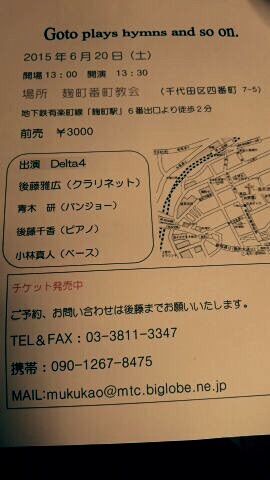 Goto plays hymns and so on.
2015年6月20日（土）
開場13：00 開演 13：30
場所 麹町番町教会 （千代田区四番町 7-5）
地下鉄有楽町線「麹町駅」6番出口より徒歩2分
前売 ￥3000
出演 Delta4
後藤雅広（クラリネット）
青木 研（バンジョー）
後藤千香（ピアノ）
小林真人（ベース）
チケット発売中
ご予約、お問い合わせは後藤までお願いいたします。
TEL＆FAX：03-3811-3347
携帯：090-1267-8475
MAIL:mukukao@mtc.biglobe.ne.jp